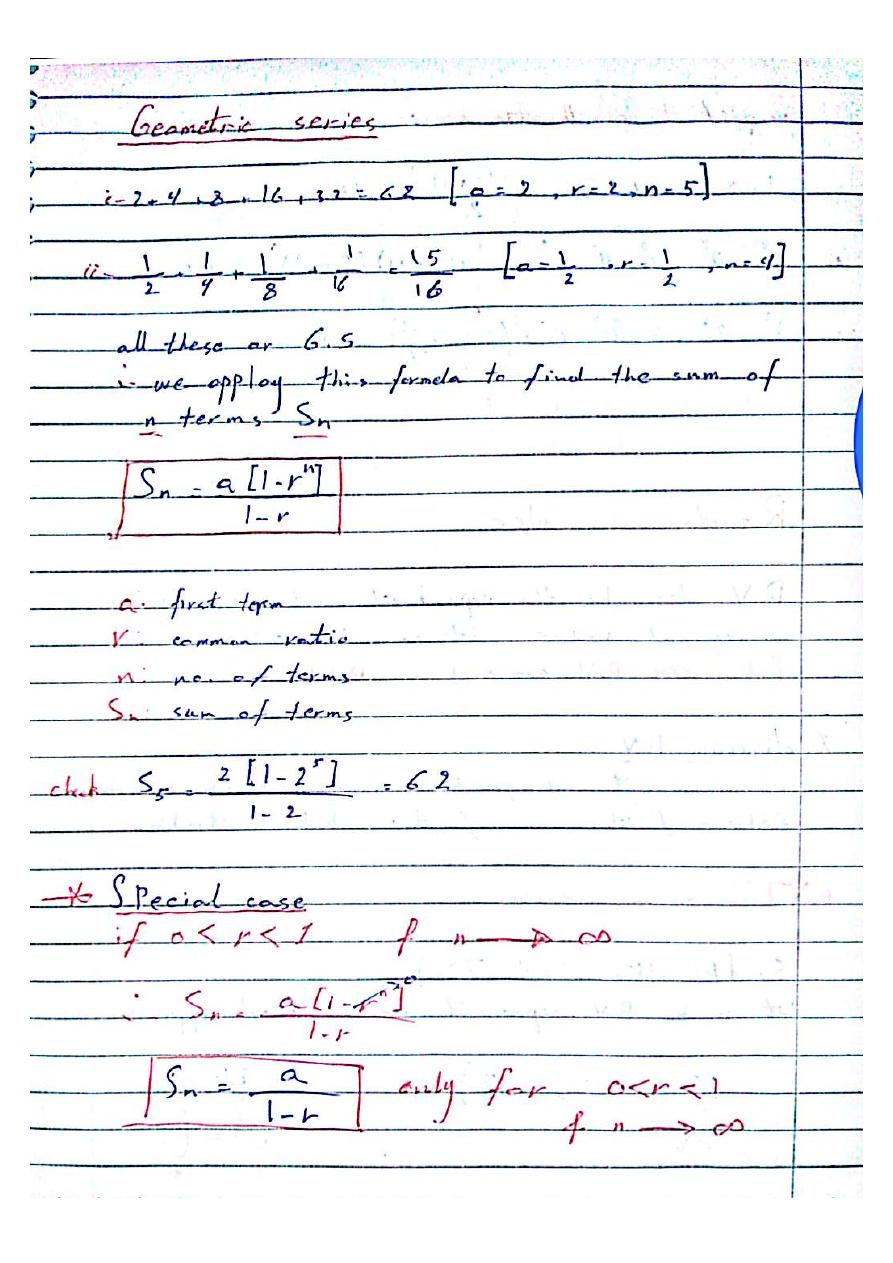 Geometric series
i- 2+4+8+16+32=62 [a=2, r=2, n=5]
ii- 1/2 + 1/4 + 1/8 + 1/16 = 15/16 [a=1/2, r=1/2, n=4]
all these ar G.S
∴ we apploy this formela to find the sum of
n terms Sn
Sn = a[1-r^n] / 1-r
a: first term
r: common ratio
n: no. of terms
Sn: sum of terms
check S5 = 2[1-2^5] / 1-2 = 62
* Special case
if 0<r<1 f n → ∞
∴ Sn = a[1-r^n→0] / 1-r
Sn = a / 1-r only for 0<r<1
f n → ∞